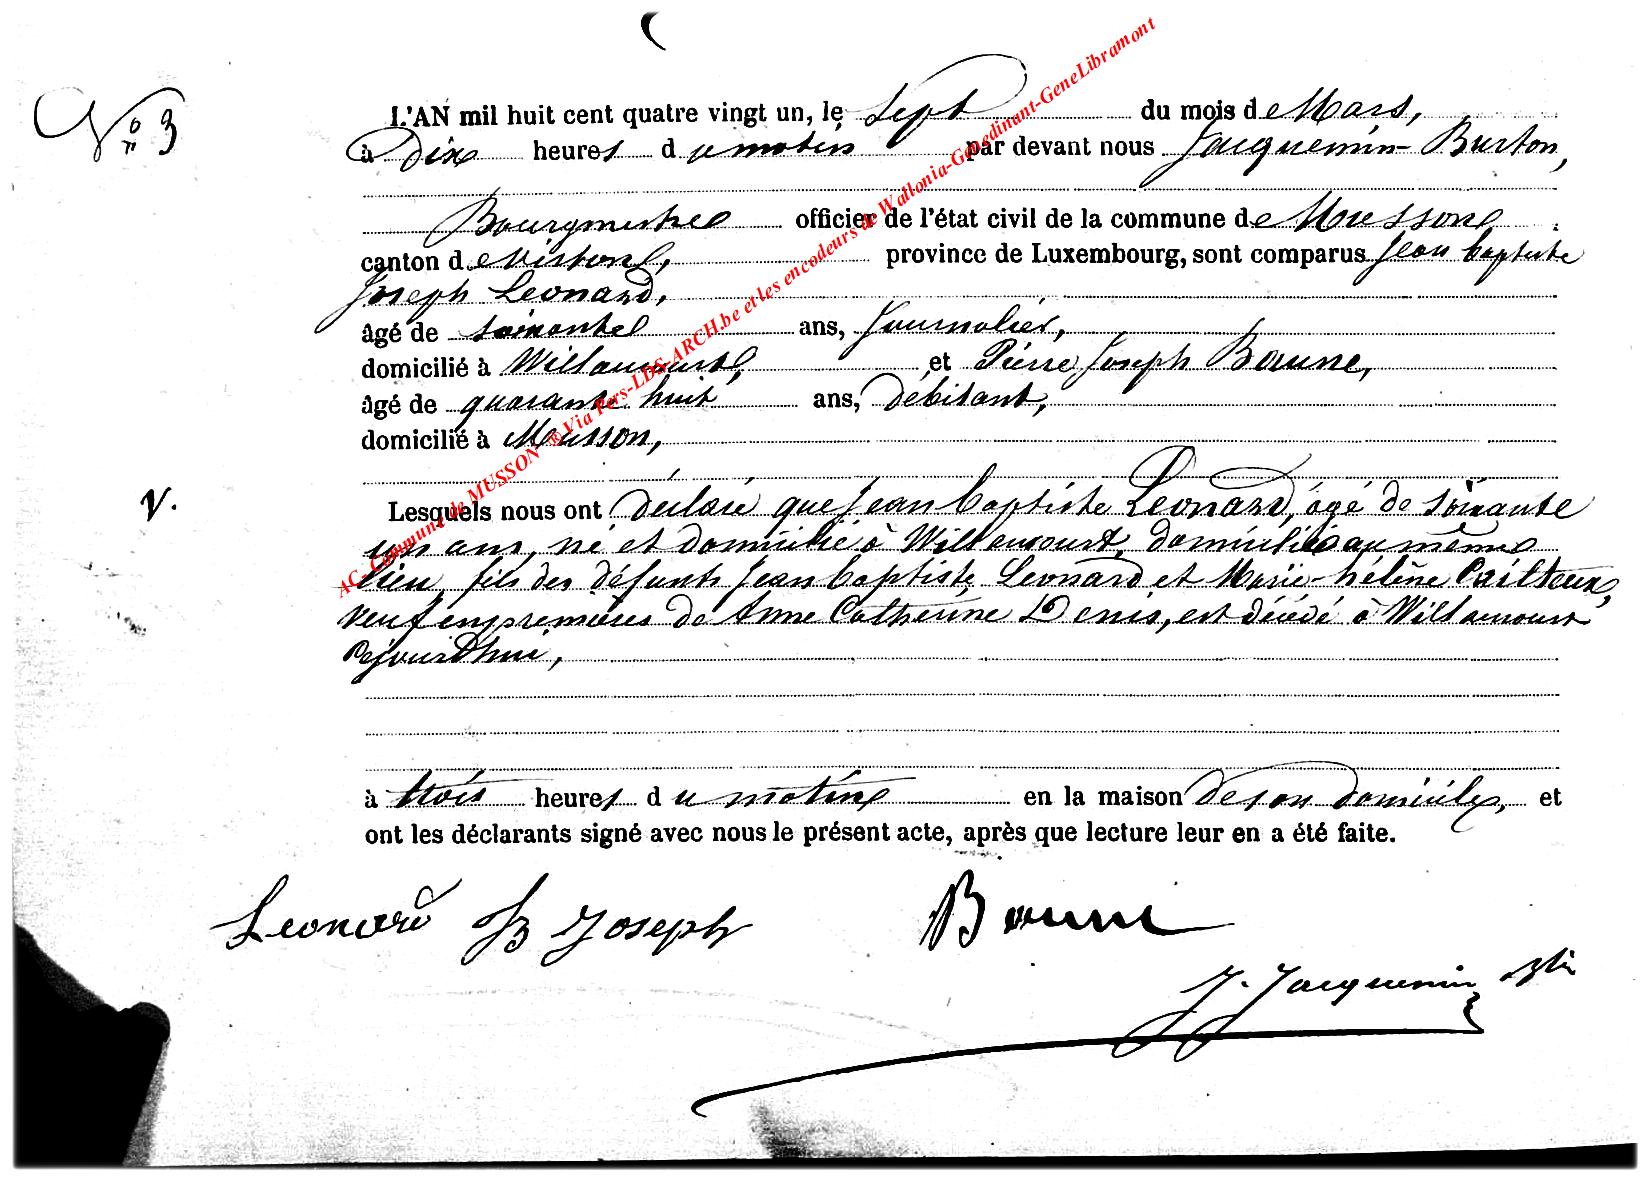 N° 3
L'AN mil huit cent quatre vingt un, le Sept du mois de Mars,
à Dix heures du matin par devant nous Jacquemin-Burton,
Bourgmestre officier de l'état civil de la commune de Musson
canton de Virton, province de Luxembourg, sont comparus Jean baptiste
Joseph Leonard,
âgé de soixante ans, Journalier,
domicilié à Willancourt, et Pierre Joseph Baune,
âgé de quarante huit ans, débitant,
domicilié à Musson,
V.
Lesquels nous ont Déclaré que Jean baptiste Leonard, âgé de soixante
ans, né et domicilié à Willancourt, domicilié au même
lieu, fils des défunts Jean baptiste Leonard et Marie-hélène
veuf en premières de Anne Catherine Denis, est décédé à Willancourt
à trois heures du matin en la maison de son domicile, et
ont les déclarants signé avec nous le présent acte, après que lecture leur en a été faite.
Leonard JB Joseph Baune
J. Jacquemin
AC. Commune de MUSSON ® Via Pers-LDS-ARCH.be et les encodeurs de Wallonia-Genedinant-GeneLibramont